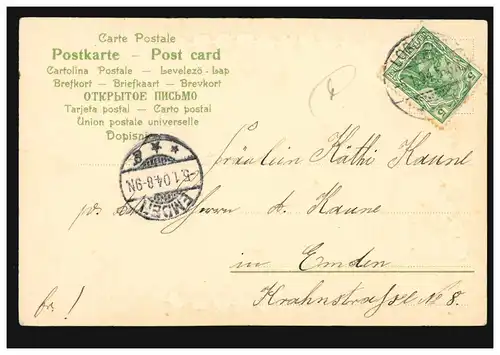 Carte Postale
Postkarte — Post card
Cartolina Postale — Levelező-Lap
Brefkort — Briefkaart — Brevkort
ОТКРЫТОЕ ПИСЬМО
Tarjeta postal — Carto postal
Union postale universelle
Dopisni
5
5
EMDEN
5.1.04.8-9N.
Fräulein Käthi Haune
Herrn A. Haune
in Emden
Krahnstrasse No 8.